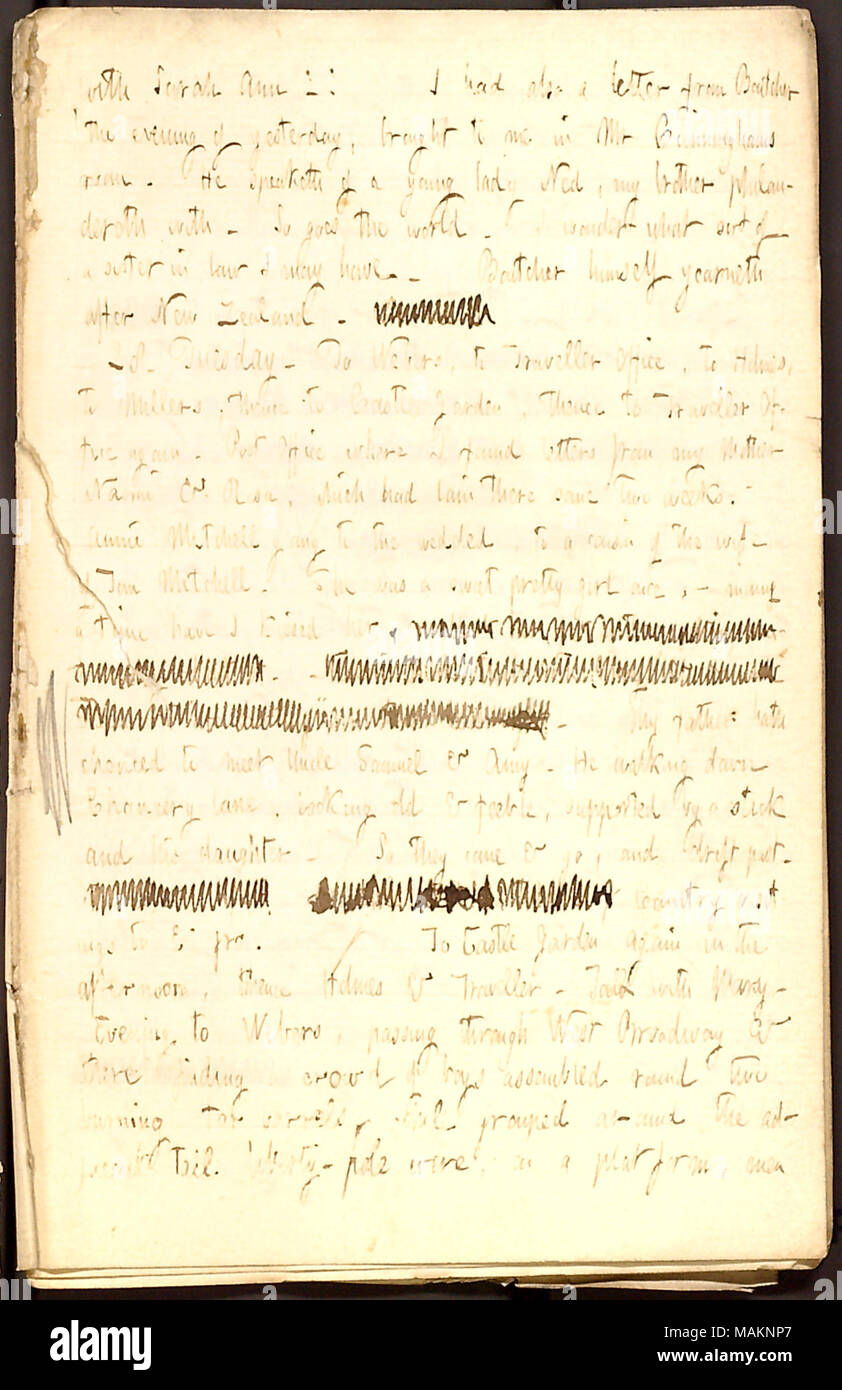 with Sarah Ann !! I had also a letter from Boutcher
the evening of yesterday, brought to me in Mr Bellinghams
room. He speaketh of a young lady Ned, my brother philan-
dereth with. So goes the world. I wonder what sort of
a sister in law I may have. Boutcher himself yearneth
after New Zealand.
8. Tuesday. To Webers, to Traveller Office, to Holmes,
to Millers, thence to Castle Garden, thence to Traveller Of-
fice again. Post Office where I found letters from my Mother
Naomi & Rosa, which had lain there some two weeks.
Annie Mitchell going to the wedded, to a cousin of the wife
of Tom Mitchell. She was a sweet pretty girl once, many
a time have I kissed her,
My father hath
chanced to meet Uncle Samuel & Amy. He walking down
Chancery lane, looking old & feeble, supported by a stick
and his daughter. So they come & go, and drift past.
country
To Castle Garden again in the
afternoon, thence Holmes & Traveller. Talk with Mary.
Evening to Webers, passing through West Broadway &
there finding a crowd of boys assembled round two
burning tar barrels, grouped around the ad-
jacent tall liberty-pole were, on a platform, men
alamy
Image ID: MAKNP7
www.alamy.com